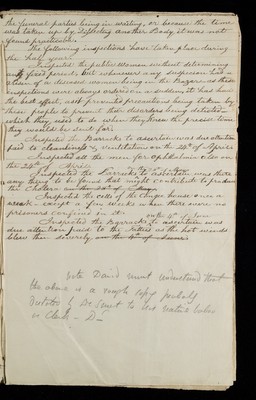 the funeral parties being in waiting, or because the time
was taken up by dissecting another Body, it was not
found practicable.
The following inspections have taken place during
the half year:
Inspected the public Women without determining
any fixed period, but whenever any suspicion had
of a diseased woman being in the Bazar, as these
inspections were always ordered on a sudden, it has had
the best effect, and prevented precautions being taken by
these people to prevent their disorders being detected,
which they used to do when they knew the precise time
they would be sent for.
Inspected the Barracks to ascertain was due attention
paid to cleanliness & ventilation on the 28th of April
Inspected all the men for ophthalmia &c on
the 29th of April
Inspected the Barracks to ascertain was there
any thing to be found that might contribute to produce
the Cholera
Inspected the cells of the Congee house once a
week except a few weeks when there were no
prisoners confined in it.
on the 4th of June
Inspected the Barracks to ascertain was
due attention paid to the Tatties as the hot winds
blew then severely, on the 4th of June
Note David must understand that
the above is a rough copy probably
Dictated by Dr to his native writer
or Clerk – D –